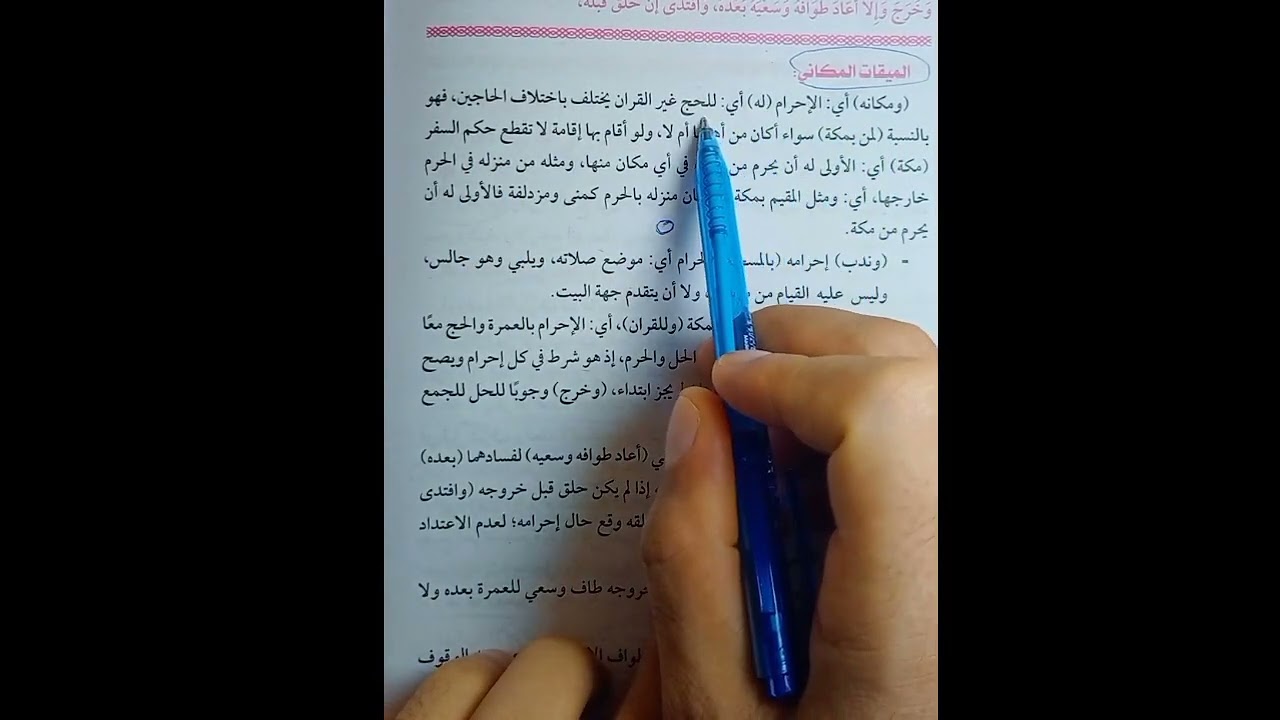 وَخَرَجَ وَإِلَّا أَعَادَ طَوَافَهُ وَسَعْيَهُ بَعْدَهُ، وَافْتَدَى إِنْ حَلَقَ قَبْلَهُ،
الميقات المكاني:
(ومكانه) أي: الإحرام (له) أي: للحج غير القران يختلف باختلاف الحاجين، فهو
بالنسبة (لمن بمكة) سواء أكان من أم لا، ولو أقام بها إقامة لا تقطع حكم السفر
(مكة) أي: الأولى له أن يحرم من في أي مكان منها، ومثله من منزله في الحرم
خارجها، أي: ومثل المقيم بمكة منزله بالحرم كمنى ومزدلفة فالأولى له أن
يحرم من مكة.
- (وندب) إحرامه أي: موضع صلاته، ويلبي وهو جالس،
وليس عليه القيام من ولا أن يتقدم جهة البيت.
مكة (وللقران)، أي: الإحرام بالعمرة والحج معًا
الحل والحرم، إذ هو شرط في كل إحرام ويصح
يجز ابتداء، (وخرج) وجوبًا للحل للجمع
(أعاد طوافه وسعيه) لفسادهما (بعده)
إذا لم يكن حلق قبل خروجه (وافتدى
وقع حال إحرامه؛ لعدم الاعتداد
طاف وسعي للعمرة بعده ولا
طواف الوقوف